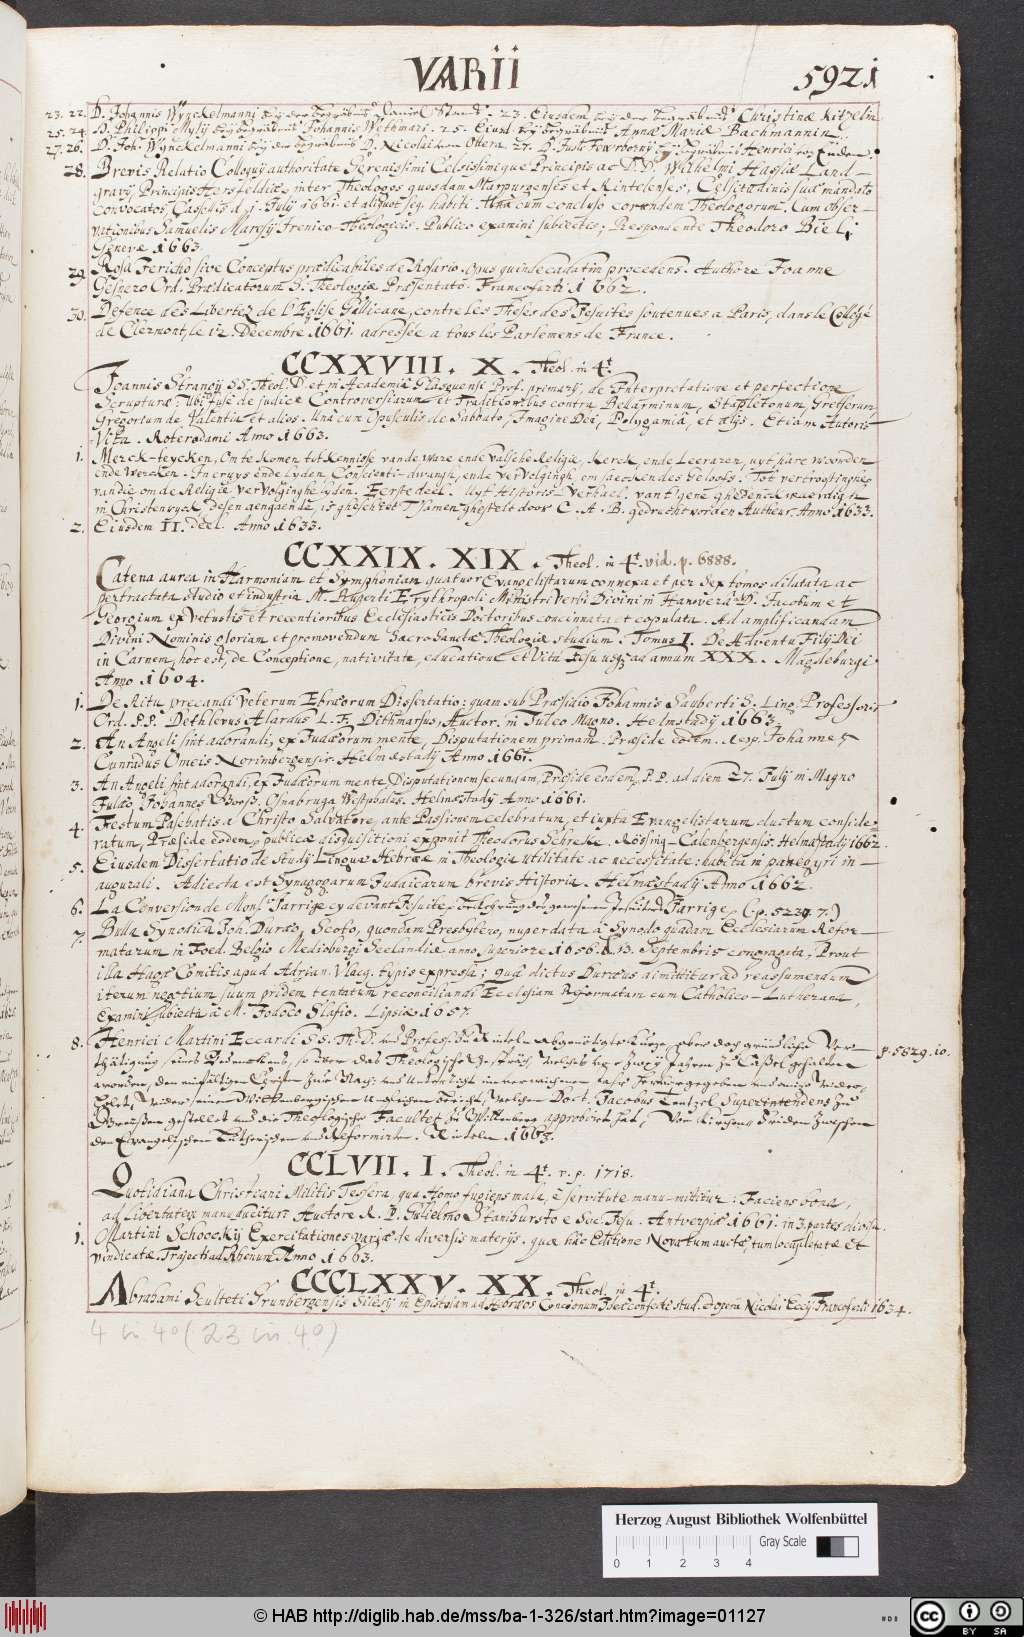 VARII
5921
23. 22. D. Johannis Wynckelmanni bey der Begräbnus 23. Eiusdem bey der Begräbnus Christinæ Kitzelin
25. 24. D. Philippi Mylij bey Begräbnus Johannis Wethmari. 25. Eiusd. bey Begräbnus Annæ Mariæ Bachmannin.
27. 26. D. Joh. Wynckelmanni bey der Begräbnus D. Nicolai von Ottera. 27. D. Justi Fewrborny bey Begräbnus Henrici von Einden.
28. Brevis Relatio Colloquij authoritate Serenissimi Celsissimique Principis ac D. D. Wilhelmi Hassiæ Land-
gravij, Principis Hersfeldiæ, inter Theologos quosdam Marpurgenses et Rintelenses, Celsitudinis suæ mandato
convocatos, Cassellis d. 1. July 1661. et aliquot seq. habiti. Unà cum concluso eorundem Theologorum. Cum obser-
vationibus Samuelis Maresij Irenico-Theologicis. Publico examini subiectis, Respondente Theodoro Bieli
Genevæ 1663.
29. Rosa Jericho sive Conceptus prædicabiles de Rosario. Opus quindecadatim procedens. Authore Joanne
Gesnero Ord. Prædicatorum S. Theologiæ Præsentato. Francofurti 1662.
30. Defence des Libertez de l'Eglise Gallicane, contre les Theses des Jesuites soutenues a Paris, dans le Collegé
de Clermont, le 12. Decembre 1661. adressée a tous les Parlemens de France.
CCXXVIII. X. Theol. in 4t.
Joannis Strangij SS. Theol. D. et in Academiâ Glasguensi Prof. primarij, de Interpretatione et perfectione
Scripturæ: Ubi fusè de judice Controversiarum et Traditionibus contra Bellarminum, Stapletonum, Gretserum,
Gregorium de Valentia et alios. Unà cum Opusculis de Sabbato, Imagine Dei, Polygamiâ, et alijs. Etiam Autoris
Vita. Roterodami Anno 1663.
1. Merck-teycken, Om te komen tot kennisse van de ware ende valsche Religie, Kerck, ende Leeraren, uyt hare woorden
ende wercken. In cruys ende lyden Conscienti-dwangh, ende vervolgingh, om saecken des Geloofs. Tot vertroostinge
van die om de Religie vervolginghe lyden. Eerste deel. Uyt Historis-verhael. van 't gene ghedenckwaerdig is
in Christenryck, desen aengaende, is gheschiet Tsamen ghestelt door C. A. B. gedruckt vor den Autheur, Anno 1633.
2. Eiusdem II. deel. Anno 1633.
CCXXIX. XIX. Theol. in 4t. vid. p. 6888.
Catena aurea in Harmoniam et Symphoniam quatuor Evangelistarum connexa et per sex tomos dilatata ac
pertractata studio et industria M. Ruperti Erythropoli Ministri Verbi Divini in Hanoverâ D. Jacobum et
Georgium ex vetustis et recentioribus Ecclesiasticis Doctoribus concinnata et copulata. Ad amplificandam
Divini Nominis gloriam et promovendum Sacrosanctæ Theologiæ studium. Tomus I. De Adventu Filij Dei
in Carnem, hoc est, de Conceptione, nativitate, educatione et Vitâ Jesu usq; ad annum XXX. Magdeburgi
Anno 1604.
1. De Ritu precandi Veterum Ebræorum Dissertatio: quam sub Præsidio Johannis Sauberti S. Ling. Professoris
Ord. P.P. Dethlevus Alardus L. F. Dithmarsus, Auctor. in Iuleo Magno. Helmstadij 1663.
2. An Angeli sint adorandi, ex Judæorum mente, Disputationem primam. Præside eodem. Resp. Johannes
Cunradus Omeis Norimbergensis. Helmestadij Anno 1661.
3. An Angeli sint adorandi, ex Judæorum mente, Disputationem secundam, Præside eodem, P.P. ad diem 27. July in Magno
Iuleo, Johannes Borss. Osnabruga Westphalus. Helmestadij Anno 1661.
4. Festum Paschatis a Christo Salvatore, ante Passionem celebratum, et iuxta Evangelistarum ductum conside-
ratum, Præside eodem, publicæ disquisitioni exponit Theodorus Schreke. Rössing-Calenbergensis. Helmestadij 1662.
5. Eiusdem Dissertatio de Studij Linguæ Hebrææ in Theologia utilitate ac necessitate: habita in panegyri in-
augurali. Adiecta est Synagogarum Judaicarum brevis Historia. Helmestadij Anno 1662.
6. La Conversion de Monsr. Jarrige cy devant Jesuite, Bekehrung des gewesenen Jesuiten Jarrige. (p. 5234. 7.)
7. Bulla Synodica Joh. Duræo, Scoto, quondam Presbytero, nuper data à Synodo quadam Ecclesiarum Refor-
matarum in Foed. Belgio Medioburgi Seelandiæ anno superiore 1656. d. 13. Septembris congregata, Prout
illa Hagæ Comitis apud Adrian. Vlacq. typis expressa; quâ dictus Duræus dimittitur ad reassumendum
iterum negotium suum pridem tentatum reconciliandi Ecclesiam Reformatam cum Catholico-Lutherana,
Examini subiecta à M. Jodoco Slasio. Lipsiæ 1657.
8. Henrici Martini Eccardi SS. Th. D. und Profess. zu Rinteln Abgenötigte kurtze, aber doch gründliche Ver-
thätigung, seines Bedenckens, so über das Theologische Gespräch, welches vor zweij Jahren zu Cassel gehalten
p. 5629. 10.
worden, den einfältigen Christen zur Nach- und Unterricht im verwichenen Jahr hervorgegeben und anitzo wieder-
holet, wider einen Wittenbergischen Unglichen Bericht, welchen Doct. Jacobus Tentzel Superintendens zu
Greussen gestellet und die Theologische Facultet zu Wittenberg approbiret hat, Von Kirchen Frieden zwischen
den Evangelischen Lutherischen und Reformirten. Rinteln 1663.
CCLVII. I. Theol. in 4t. v. p. 1718.
Quotidiana Christiani Militis Tessera, qua Homo fugiens mala, è servitute manu-mittitur: Faciens bona,
ad Libertatem manuducitur: Auctore R. P. Gulielmo Stanihursto e Soc. Jesu. Antverpiæ 1661. in 3. partes divisa.
1. Martini Schoockij Exercitationes variæ de diversis materijs. quæ hâc Editione Novâ tum auctæ, tum locupletatæ et
vindicatæ. Trajecti ad Rhenum Anno 1663.
CCCLXXV. XX. Theol. in 4t.
Abrahami Sculteti Grunbergensis Silesij in Epistolam ad Hebræos Concionum Ideæ confecti stud. et opera Nicolai Eccij Francofurti 1634.
4 in 4° (23 in 4°)
Herzog August Bibliothek Wolfenbüttel
Gray Scale
0 1 2 3 4
© HAB http://diglib.hab.de/mss/ba-1-326/start.htm?image=01127
cc BY SA